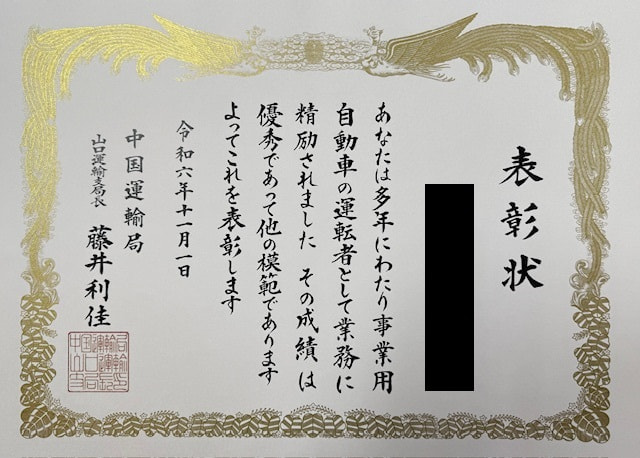 表彰状
あなたは多年にわたり事業用
自動車の運転者として業務に
精励されました その成績は
優秀であって他の模範であります
よってこれを表彰します
令和六年十一月一日
中国運輸局
山口運輸支局長 藤井利佳